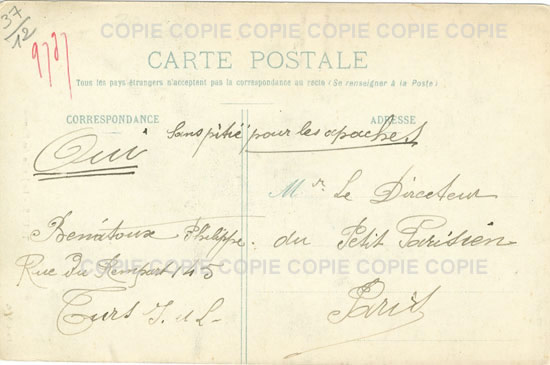 COPIE COPIE COPIE COPIE COPIE
37/12
9797
CARTE POSTALE
Tous les pays-étrangers n'acceptent pas la correspondance au recto (Se renseigner à la Poste)
CORRESPONDANCE
ADRESSE
COPIE COPIE COPIE COPIE COPIE
Oui à Sans pitié pour les apaches
Philippe
Rue du Rempart 145
Turs I. et L.
Mr. Le Directeur
du Petit Parisien
Paris
COPIE COPIE COPIE COPIE COPIE